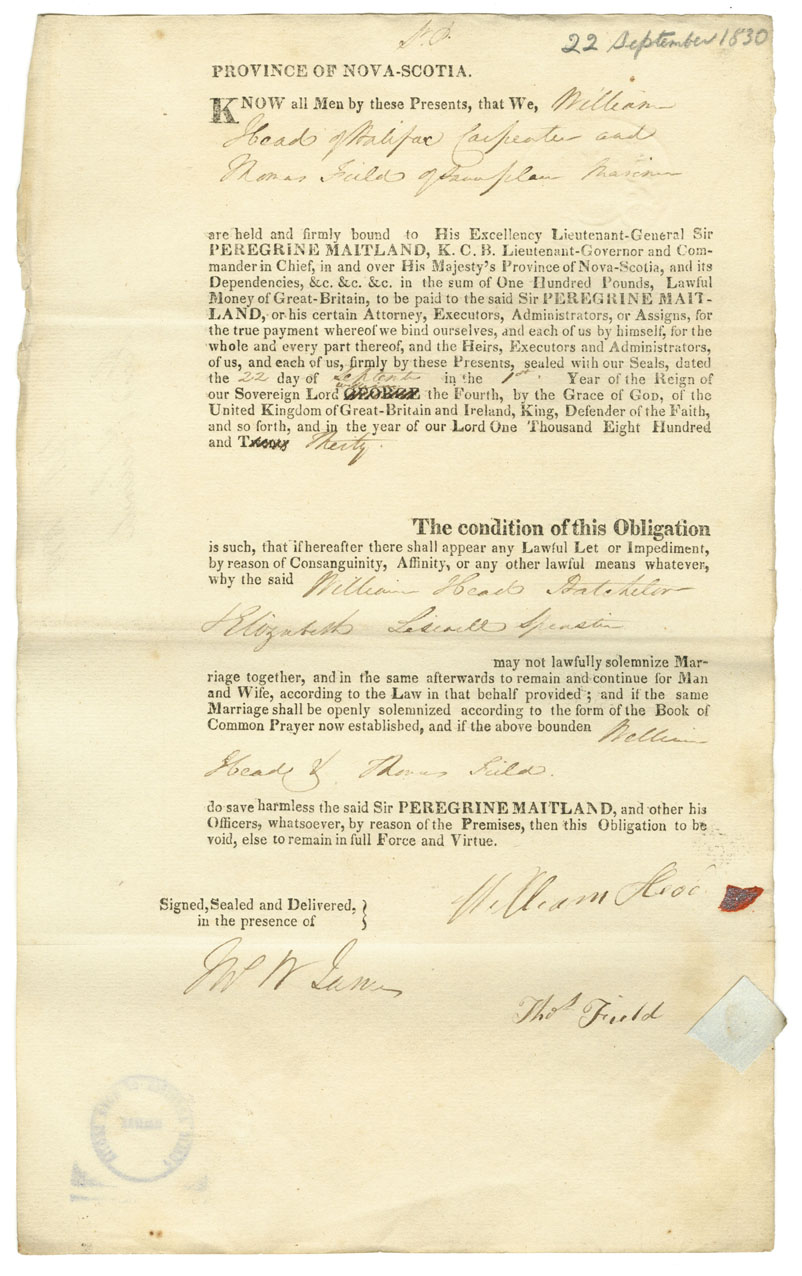 22 September 1830
PROVINCE OF NOVA-SCOTIA.
KNOW all Men by these Presents, that We, William
Head of Halifax Carpenter and
Thomas Field of Same place Mariner
are held and firmly bound to His Excellency Lieutenant-General Sir
PEREGRINE MAITLAND, K. C. B. Lieutenant-Governor and Com-
mander in Chief, in and over His Majesty's Province of Nova-Scotia, and its
Dependencies, &c. &c. &c. in the sum of One Hundred Pounds, Lawful
Money of Great-Britain, to be paid to the said Sir PEREGRINE MAIT-
LAND, or his certain Attorney, Executors, Administrators, or Assigns, for
the true payment whereof we bind ourselves, and each of us by himself, for the
whole and every part thereof, and the Heirs, Executors and Administrators,
of us, and each of us, firmly by these Presents, sealed with our Seals, dated
the 22 day of in the 1st. Year of the Reign of
our Sovereign Lord GEORGE the Fourth, by the Grace of GOD, of the
United Kingdom of Great-Britain and Ireland, King, Defender of the Faith,
and so forth, and in the year of our Lord One Thousand Eight Hundred
and Thirty.
The condition of this Obligation
is such, that if hereafter there shall appear any Lawful Let or Impediment,
by reason of Consanguinity, Affinity, or any other lawful means whatever,
why the said William Head Batchelor
Elizabeth Spinster
may not lawfully solemnize Mar-
riage together, and in the same afterwards to remain and continue for Man
and Wife, according to the Law in that behalf provided; and if the same
Marriage shall be openly solemnized according to the form of the Book of
Common Prayer now established, and if the above bounden William
Head & Thomas Field.
do save harmless the said Sir PEREGRINE MAITLAND, and other his
Officers, whatsoever, by reason of the Premises, then this Obligation to be
void, else to remain in full Force and Virtue.
Signed, Sealed and Delivered,
in the presence of
William Head
Thos Field